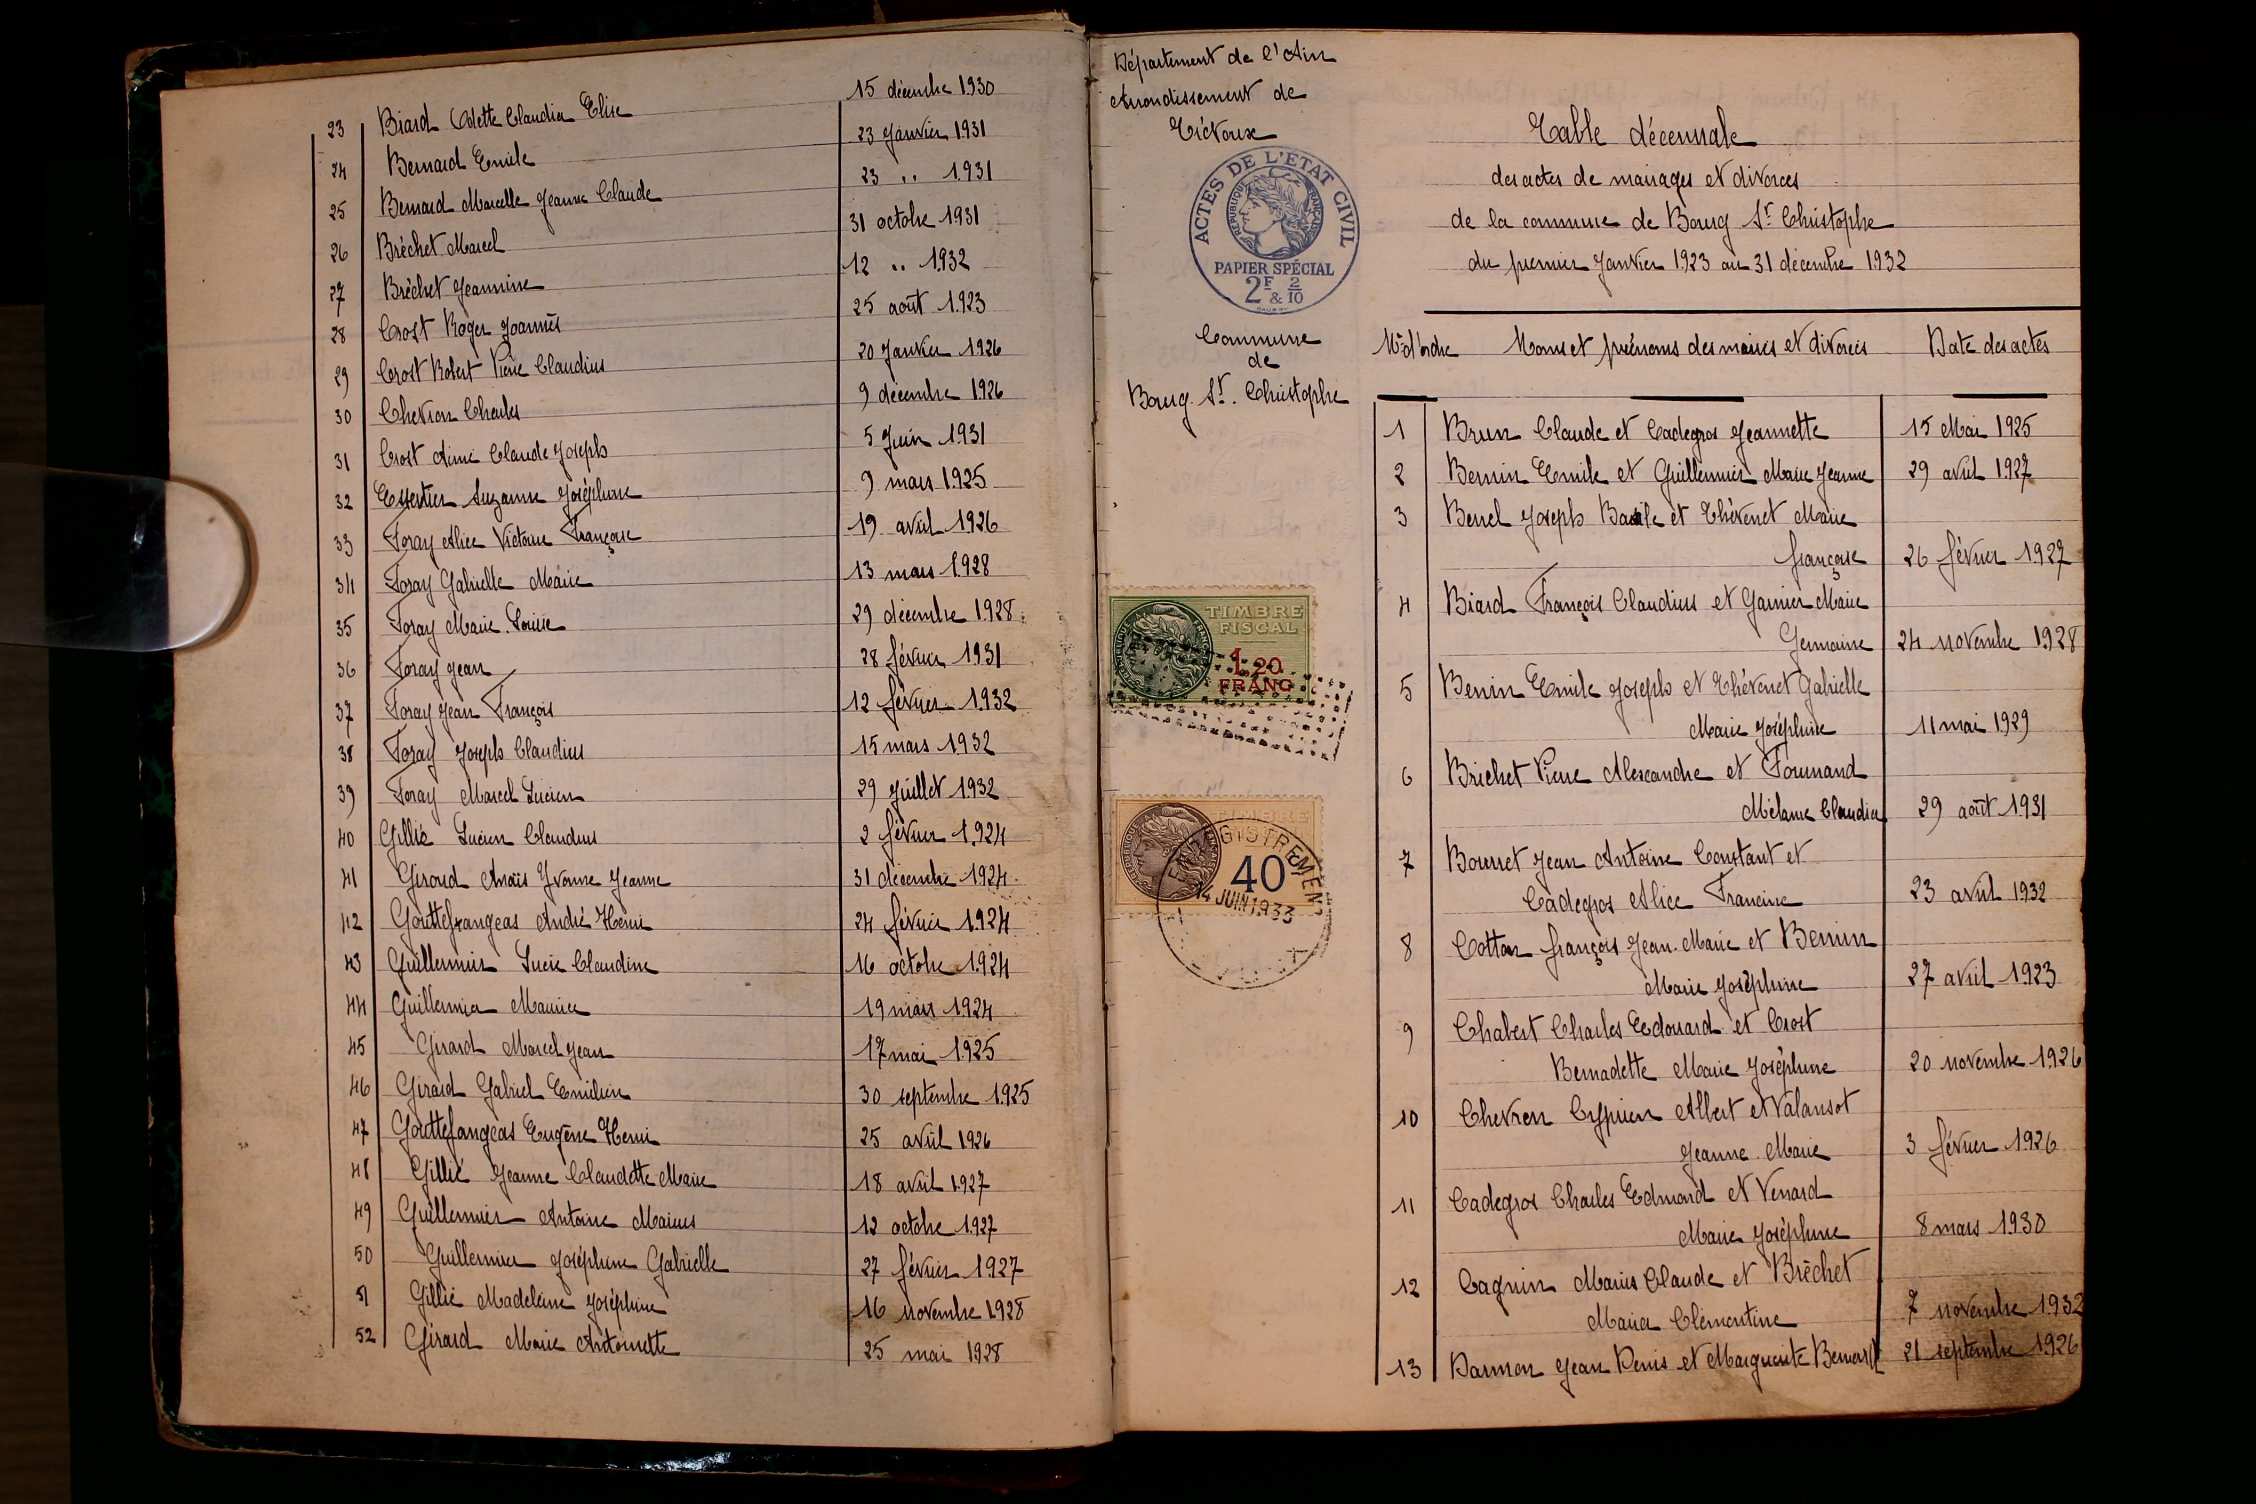 23 Biard Odette Claudia Elise 15 décembre 1930
24 Bernard Emile 23 Janvier 1931
25 Bernard Marcelle Jeanne Claude 23 " 1931
26 Bréchet Marcel 31 octobre 1931
27 Bréchet Jeannine 12 " 1932
28 Crost Roger Joannès 25 août 1923
29 Crost Robert Pierre Claudius 20 Janvier 1926
30 Chevron Charles 9 décembre 1926
31 Crost Aimé Claude Joseph 5 Juin 1931
32 Essertier Suzanne Joséphine 9 mars 1925
33 Foray Alice Victoire Françoise 19 avril 1926
34 Foray Gabrielle Marie 13 mars 1928
35 Foray Marie Louise 29 décembre 1928
36 Foray Jean 28 février 1931
37 Foray Jean François 12 février 1932
38 Foray Joseph Claudius 15 mars 1932
39 Foray Marcel Lucien 29 Juillet 1932
40 Gillié Lucien Claudius 2 février 1924
41 Giroud Anaïs Yvonne Jeanne 31 décembre 1924
42 Gouttefangeas André Henri 24 février 1924
43 Guillermin Lucie Claudine 16 octobre 1924
44 Guillermin Maurice 19 mars 1924
45 Girard Marcel Jean 17 mai 1925
46 Girard Gabriel Emilien 30 septembre 1925
47 Gouttefangeas Eugène Henri 25 avril 1926
48 Gillié Jeanne Claudette Marie 18 avril 1927
49 Guillermin Antoine Marius 12 octobre 1927
50 Guillermin Joséphine Gabrielle 27 février 1927
51 Gillié Madeleine Joséphine 16 novembre 1928
52 Girard Marie Antoinette 25 mai 1928
Département de l'Ain
Arrondissement de
Trévoux
ACTES DE L'ETAT CIVIL
REPUBLIQUE FRANÇAISE
PAPIER SPÉCIAL
2F & 2/10
Commune
de
Bourg St. Christophe
TIMBRE
FISCAL
1,20
FRANC
TIMBRE
40
ENREGISTREMENT
14 JUIN 1933
Table décennale
des actes de mariages et divorces
de la commune de Bourg St Christophe
du premier Janvier 1923 au 31 décembre 1932
Nos d'ordre Noms et prénoms des mariés et divorcés Date des actes
1 Brun Claude et Cadegros Jeannette 15 Mai 1925
2 Bernin Emile et Guillermin Marie Jeanne 29 avril 1927
3 Benel Joseph Basile et Thévenet Marie
françoise 26 février 1927
4 Biard François Claudius et Garnier Marie
Germaine 24 novembre 1928
5 Benin Emile Joseph et Thévenet Gabrielle
Marie Joséphine 11 mai 1929
6 Brichet Pierre Alexandre et Fournand
Mélanie Claudia 29 août 1931
7 Bourret Jean Antoine Constant et
Cadegros Alice Francine 23 avril 1932
8 Cottan françois Jean Marie et Bernin
Marie Joséphine 27 avril 1923
9 Chabert Charles Edouard et Crost
Bernadette Marie Joséphine 20 novembre 1926
10 Chevron Cyprien Albert et Valansot
Jeanne Marie 3 février 1926
11 Cadegros Charles Edmond et Venard
Marie Joséphine 8 mars 1930
12 Cagnin Marius Claude et Bréchet
Maria Clémentine 7 novembre 1932
13 Darmon Jean Denis et Marguerite Bernard 21 septembre 1926